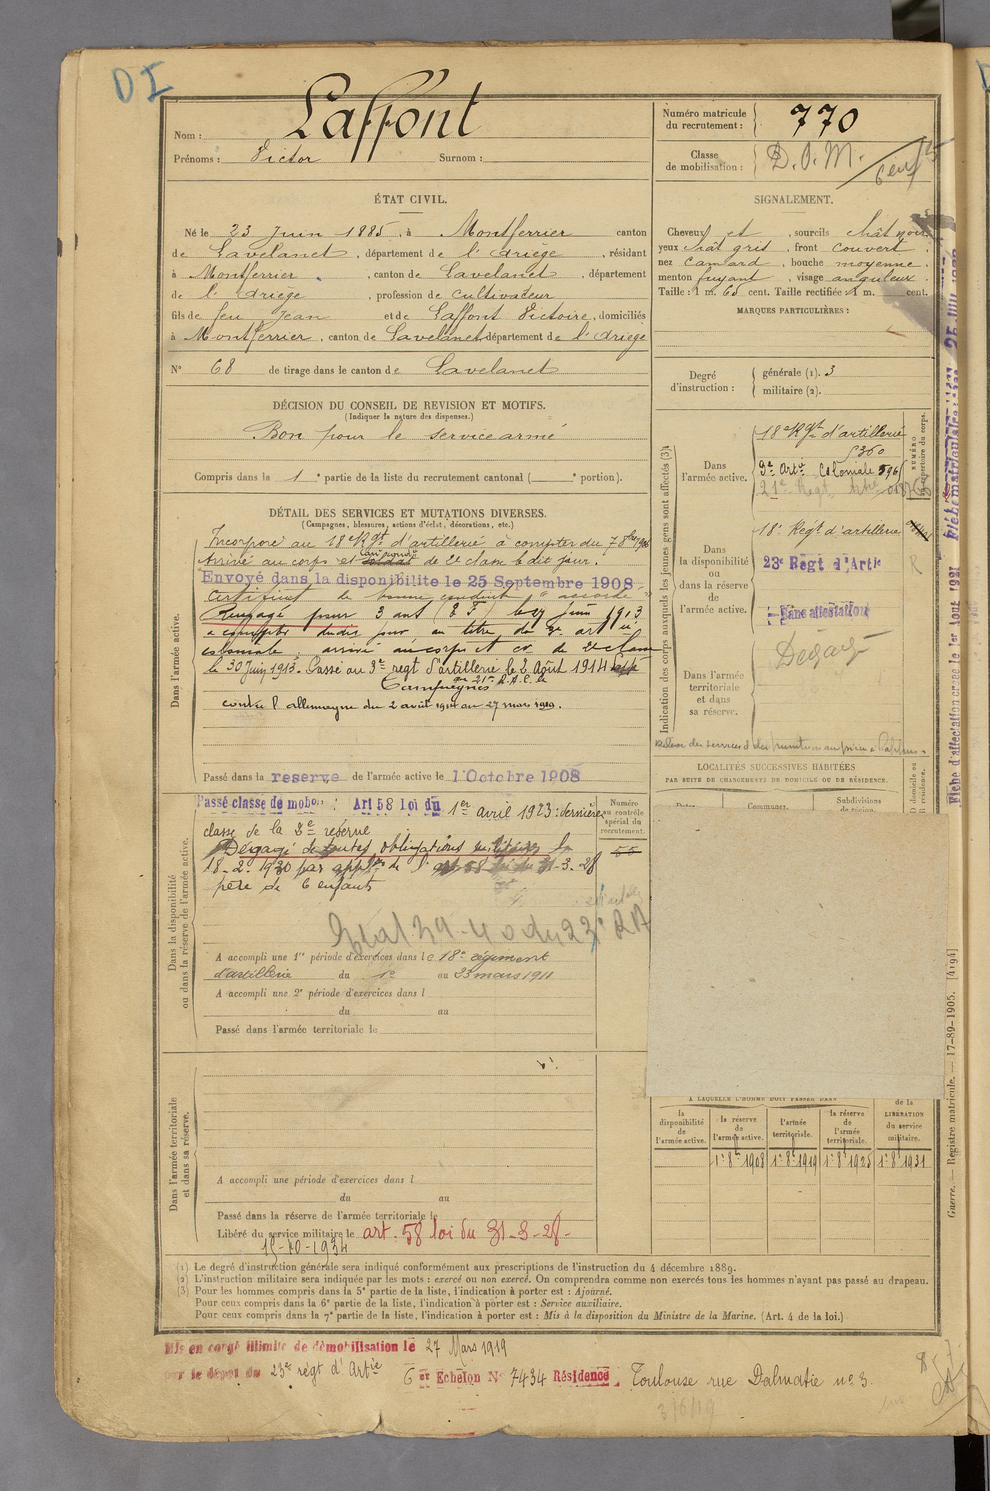 DI
Nom : Laffont
Prénoms : Victor Surnom :
Numéro matricule du recrutement : 770
Classe de mobilisation : D.O.M. 6 enf
ÉTAT CIVIL.
Né le 23 Juin 1885, à Montferrier canton
de Lavelanet, département de l'Ariège, résidant
à Montferrier, canton de Lavelanet, département
de l'Ariège, profession de cultivateur
fils de feu Jean et de Laffont Victoire, domiciliés
à Montferrier, canton de Lavelanet département de l'Ariège
N° 68 de tirage dans le canton de Lavelanet
SIGNALEMENT.
Cheveux et , sourcils chât noir
yeux chât gris , front couvert
nez camard , bouche moyenne
menton fuyant , visage anguleux
Taille : 1 m. 65 cent. Taille rectifiée : 1 m. cent.
MARQUES PARTICULIÈRES :
Degré d'instruction : générale (1). 3
militaire (2).
DÉCISION DU CONSEIL DE REVISION ET MOTIFS.
(Indiquer la nature des dispenses.)
Bon pour le service armé
Compris dans la 1e partie de la liste du recrutement cantonal ( e portion).
DÉTAIL DES SERVICES ET MUTATIONS DIVERSES.
(Campagnes, blessures, actions d'éclat, décorations, etc.)
Dans l'armée active.
Incorporé au 18e Rgt d'artillerie à compter du 7 8bre 1906
Arrivé au corps et canonnier de 2e classe le dit jour.
Envoyé dans la disponibilité le 25 Septembre 1908
Certificat de bonne conduite "accordé"
Rengagé pour 3 ans le 27 juin 1913
à compter dudit jour, au titre du 3e artie
coloniale : arrivé au corps et cr de 2e classe
le 30 Juin 1913. Passé au 3e regt d'artillerie le 2 Août 1914
au 21e R.A.C. le
Campagnes
contre l'allemagne du 2 août 1914 au 27 mars 1919.
Passé dans la reserve de l'armée active le 1 Octobre 1908
Indication des corps auxquels les jeunes gens sont affectés (3)
NUMÉRO
Dans l'armée active.
18e Rgt d'artillerie
3e Artie Coloniale
21e Regt
Dans la disponibilité ou dans la réserve de l'armée active.
18e Regt d'artillerie
23e Regt d'Artie
Sane affectation
R
Dans l'armée territoriale et dans sa réserve.
Dégagé
LOCALITÉS SUCCESSIVES HABITÉES
PAR SUITE DE CHANGEMENTS DE DOMICILE OU DE RÉSIDENCE.
Communes.
Subdivisions
Dans la disponibilité ou dans la réserve de l'armée active.
Passé classe de mobon : Art 58 loi du 1er avril 1923 : dernière
classe de la 2e réserve
Dégagé de toutes obligations militaires le
18-2-1930 par appon de l'art 58 loi du 31-3-28
père de 6 enfants
Numéro au contrôle spécial du recrutement.
55
A accompli une 1re période d'exercices dans le 18e régiment
d'artillerie du 1er au 23 mars 1911
A accompli une 2e période d'exercices dans l
du au
Passé dans l'armée territoriale le
Dans l'armée territoriale et dans sa réserve.
A accompli une période d'exercices dans l
du au
Passé dans la réserve de l'armée territoriale le
Libéré du service militaire le art. 58 loi du 31-3-28-
15-10-1934
A LAQUELLE L'HOMME DOIT PASSER DANS
la disponibilité de l'armée active.
la réserve de l'armée active.
l'armée territoriale.
la réserve de l'armée territoriale.
de la LIBÉRATION du service militaire.
1er 8bre 1908 1er 8bre 1919 1er 8bre 1925 1er 8bre 1931
(1) Le degré d'instruction générale sera indiqué conformément aux prescriptions de l'instruction du 4 décembre 1889.
(2) L'instruction militaire sera indiquée par les mots : exercé ou non exercé. On comprendra comme non exercés tous les hommes n'ayant pas passé au drapeau.
(3) Pour les hommes compris dans la 5e partie de la liste, l'indication à porter est : Ajourné.
Pour ceux compris dans la 6e partie de la liste, l'indication à porter est : Service auxiliaire.
Pour ceux compris dans la 7e partie de la liste, l'indication à porter est : Mis à la disposition du Ministre de la Marine. (Art. 4 de la loi.)
Mis en congé illimité de démobilisation le 27 Mars 1919
par le dépôt du 23e régt d'Artie 6 er Echelon N° 7434 Résidence Toulouse rue Dalmatie n° 3.
Guerre. — Registre matricule. — 17-89-1905. [4194]